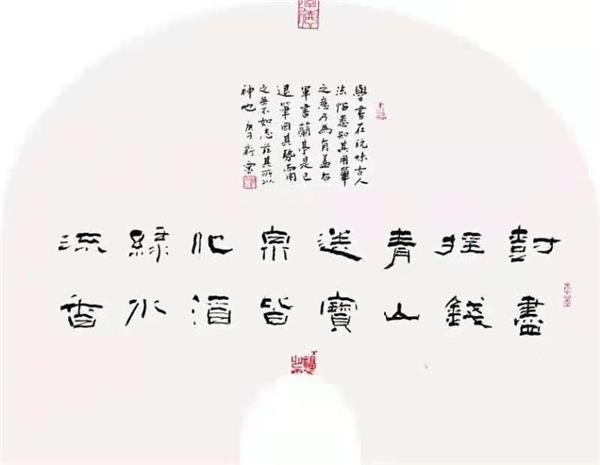 學書在玩味古人
法帖悉知其用筆
之意乃為有益右
軍書蘭亭是已
退筆因其勢而用
之無不如志茲其所以
神也
尌盡
挂錢
青山
送寶
泉皆
化酒
綠水
流香